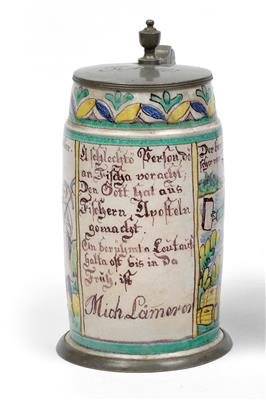 A schlechte Person, de
an Fischa veracht;
Den Gott hat aus
Fischern, Aposteln
gemacht.
Ein beruhmta Leutaich
halta oft bis in da
Früh, ist
Mich Lamerer
Der